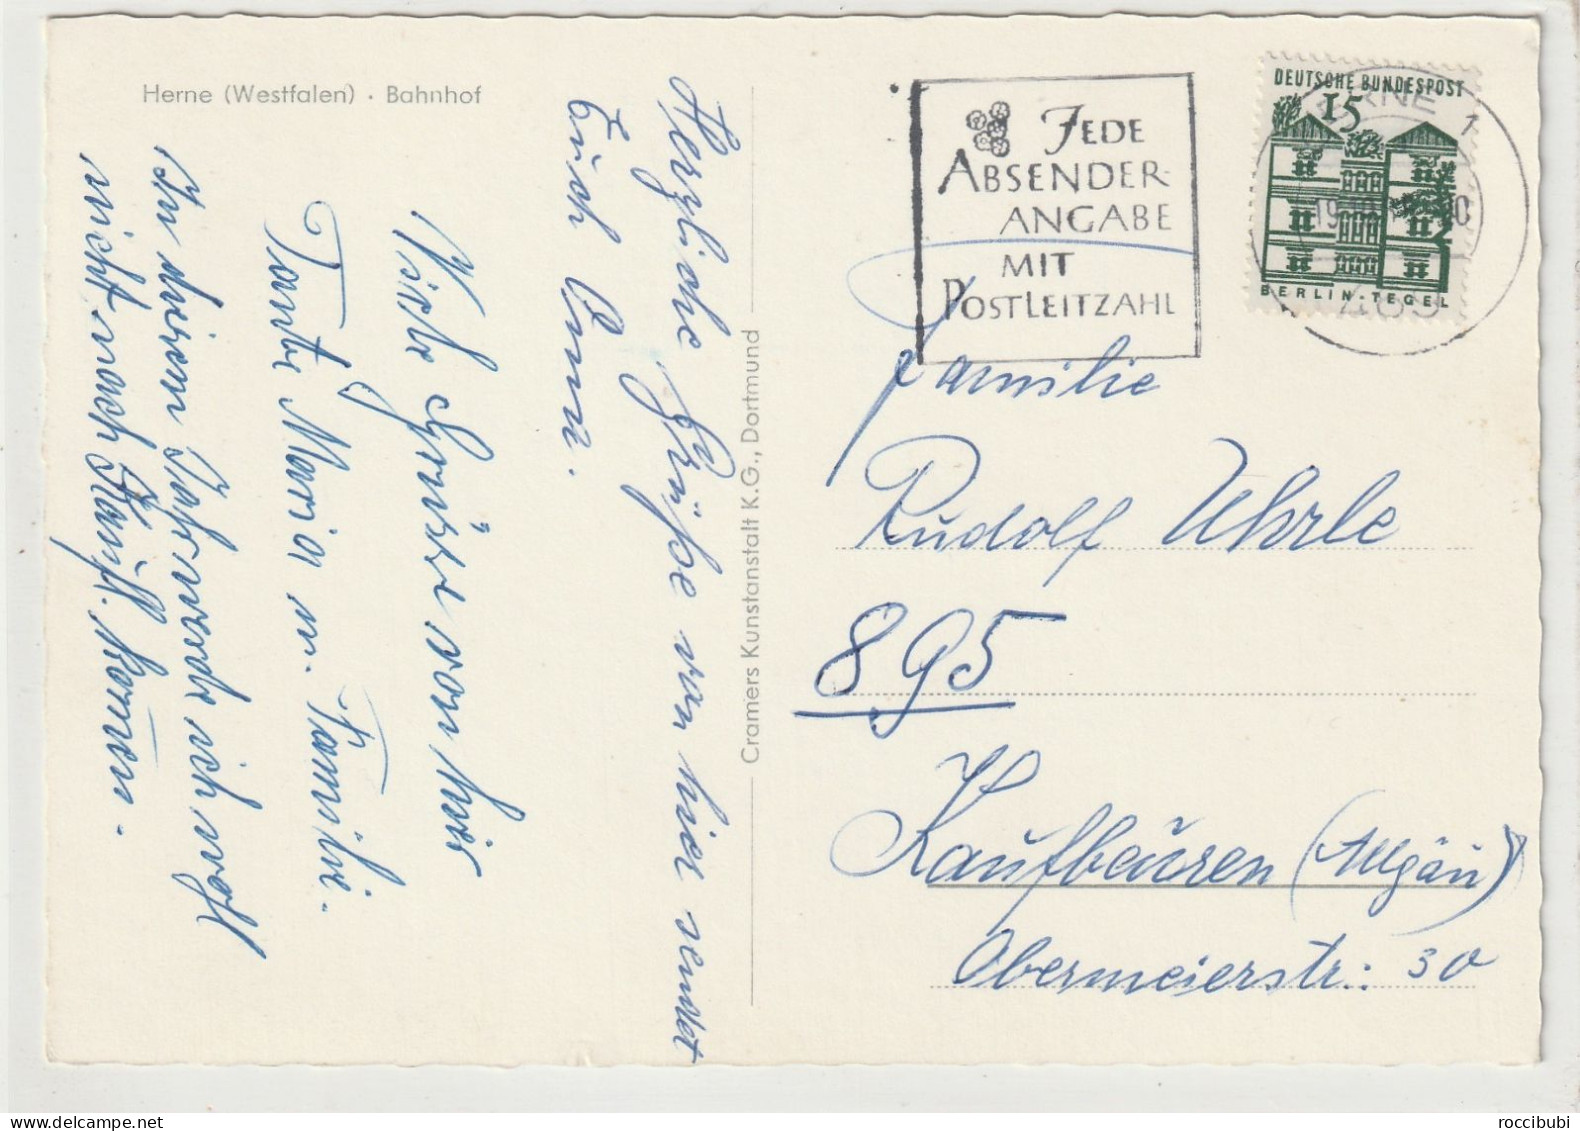 Herne (Westfalen) · Bahnhof
Herzliche Grüße von hier sendet
Euch Anni.
Viele Grüße von hier
Tante Maria u. Familie.
In diesem Jahr werde ich wohl
nicht nach Kaufb. kommen.
Cramers Kunstanstalt K.G., Dortmund
JEDE
ABSENDER-
ANGABE
MIT
POSTLEITZAHL
DEUTSCHE BUNDESPOST
15
BERLIN-TEGEL
HERNE 1
469
Familie
Rudolf Uhrle
895
Kaufbeuren (Allgäu)
Obermeierstr.: 30
roccibubi